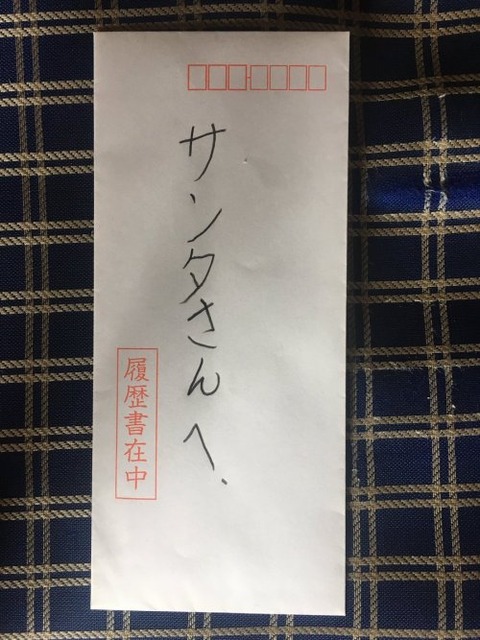 サンタさんへ.
履歴書在中